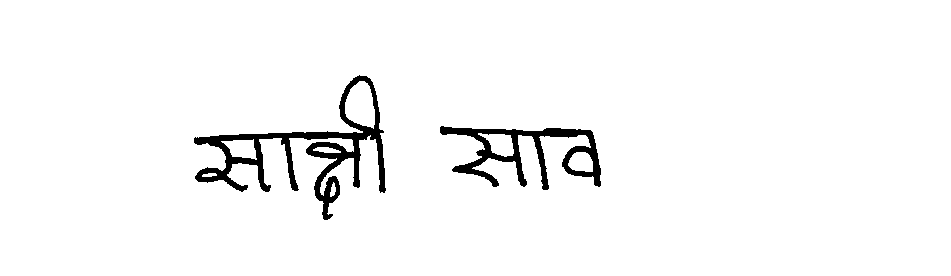 साक्षी साव